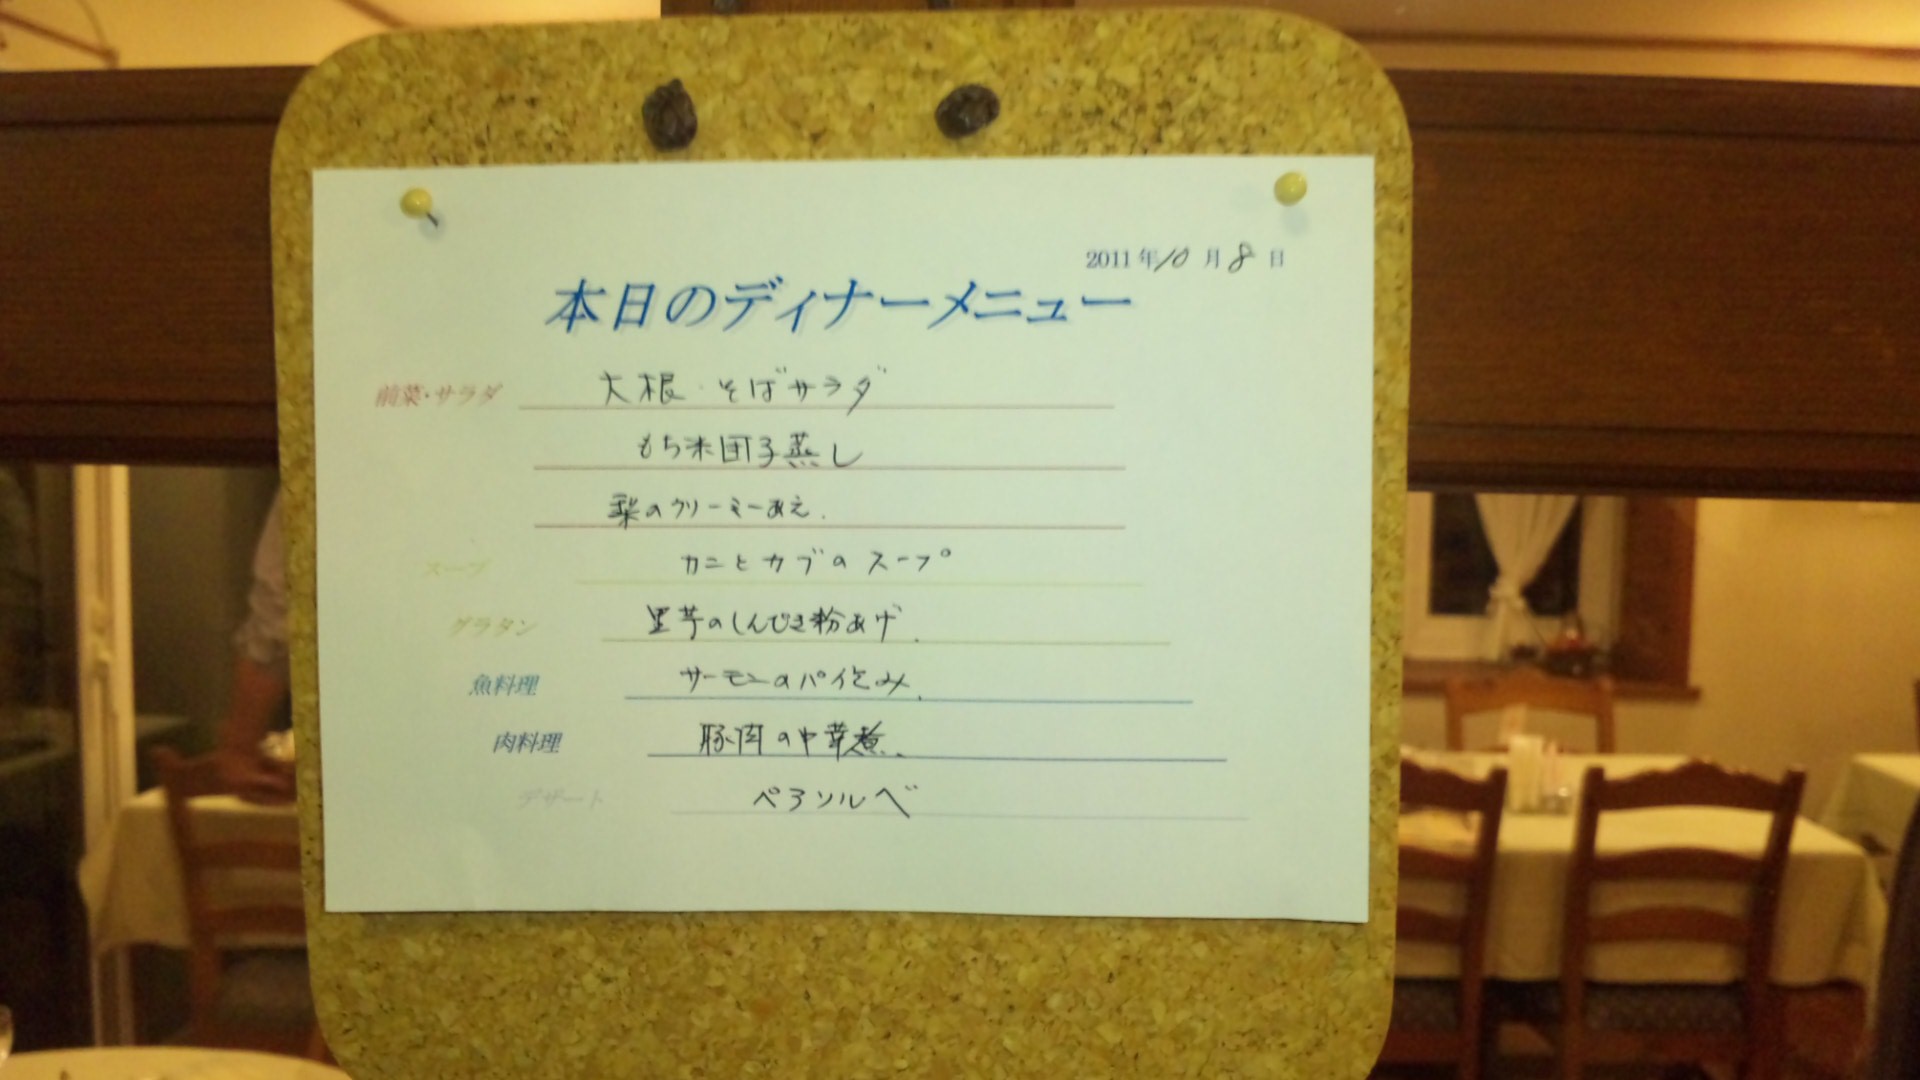 2011年10月8日
本日のディナーメニュー
前菜・サラダ 大根・そばサラダ
もち米団子蒸し
梨のクリーミーあえ.
スープ カニとカブのスープ
グラタン 里芋のしんびき粉あげ.
魚料理 サーモンのパイ包み.
肉料理 豚肉の中華煮.
デザート ペアソルベ